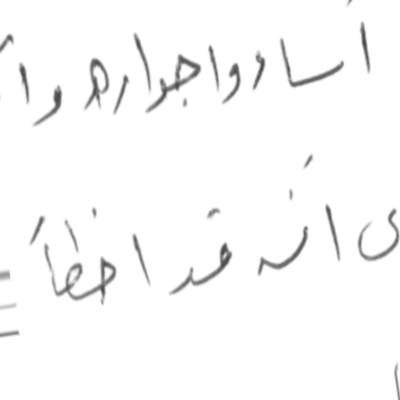 أساءوا جواره وا
ى أنه قد اخطأ